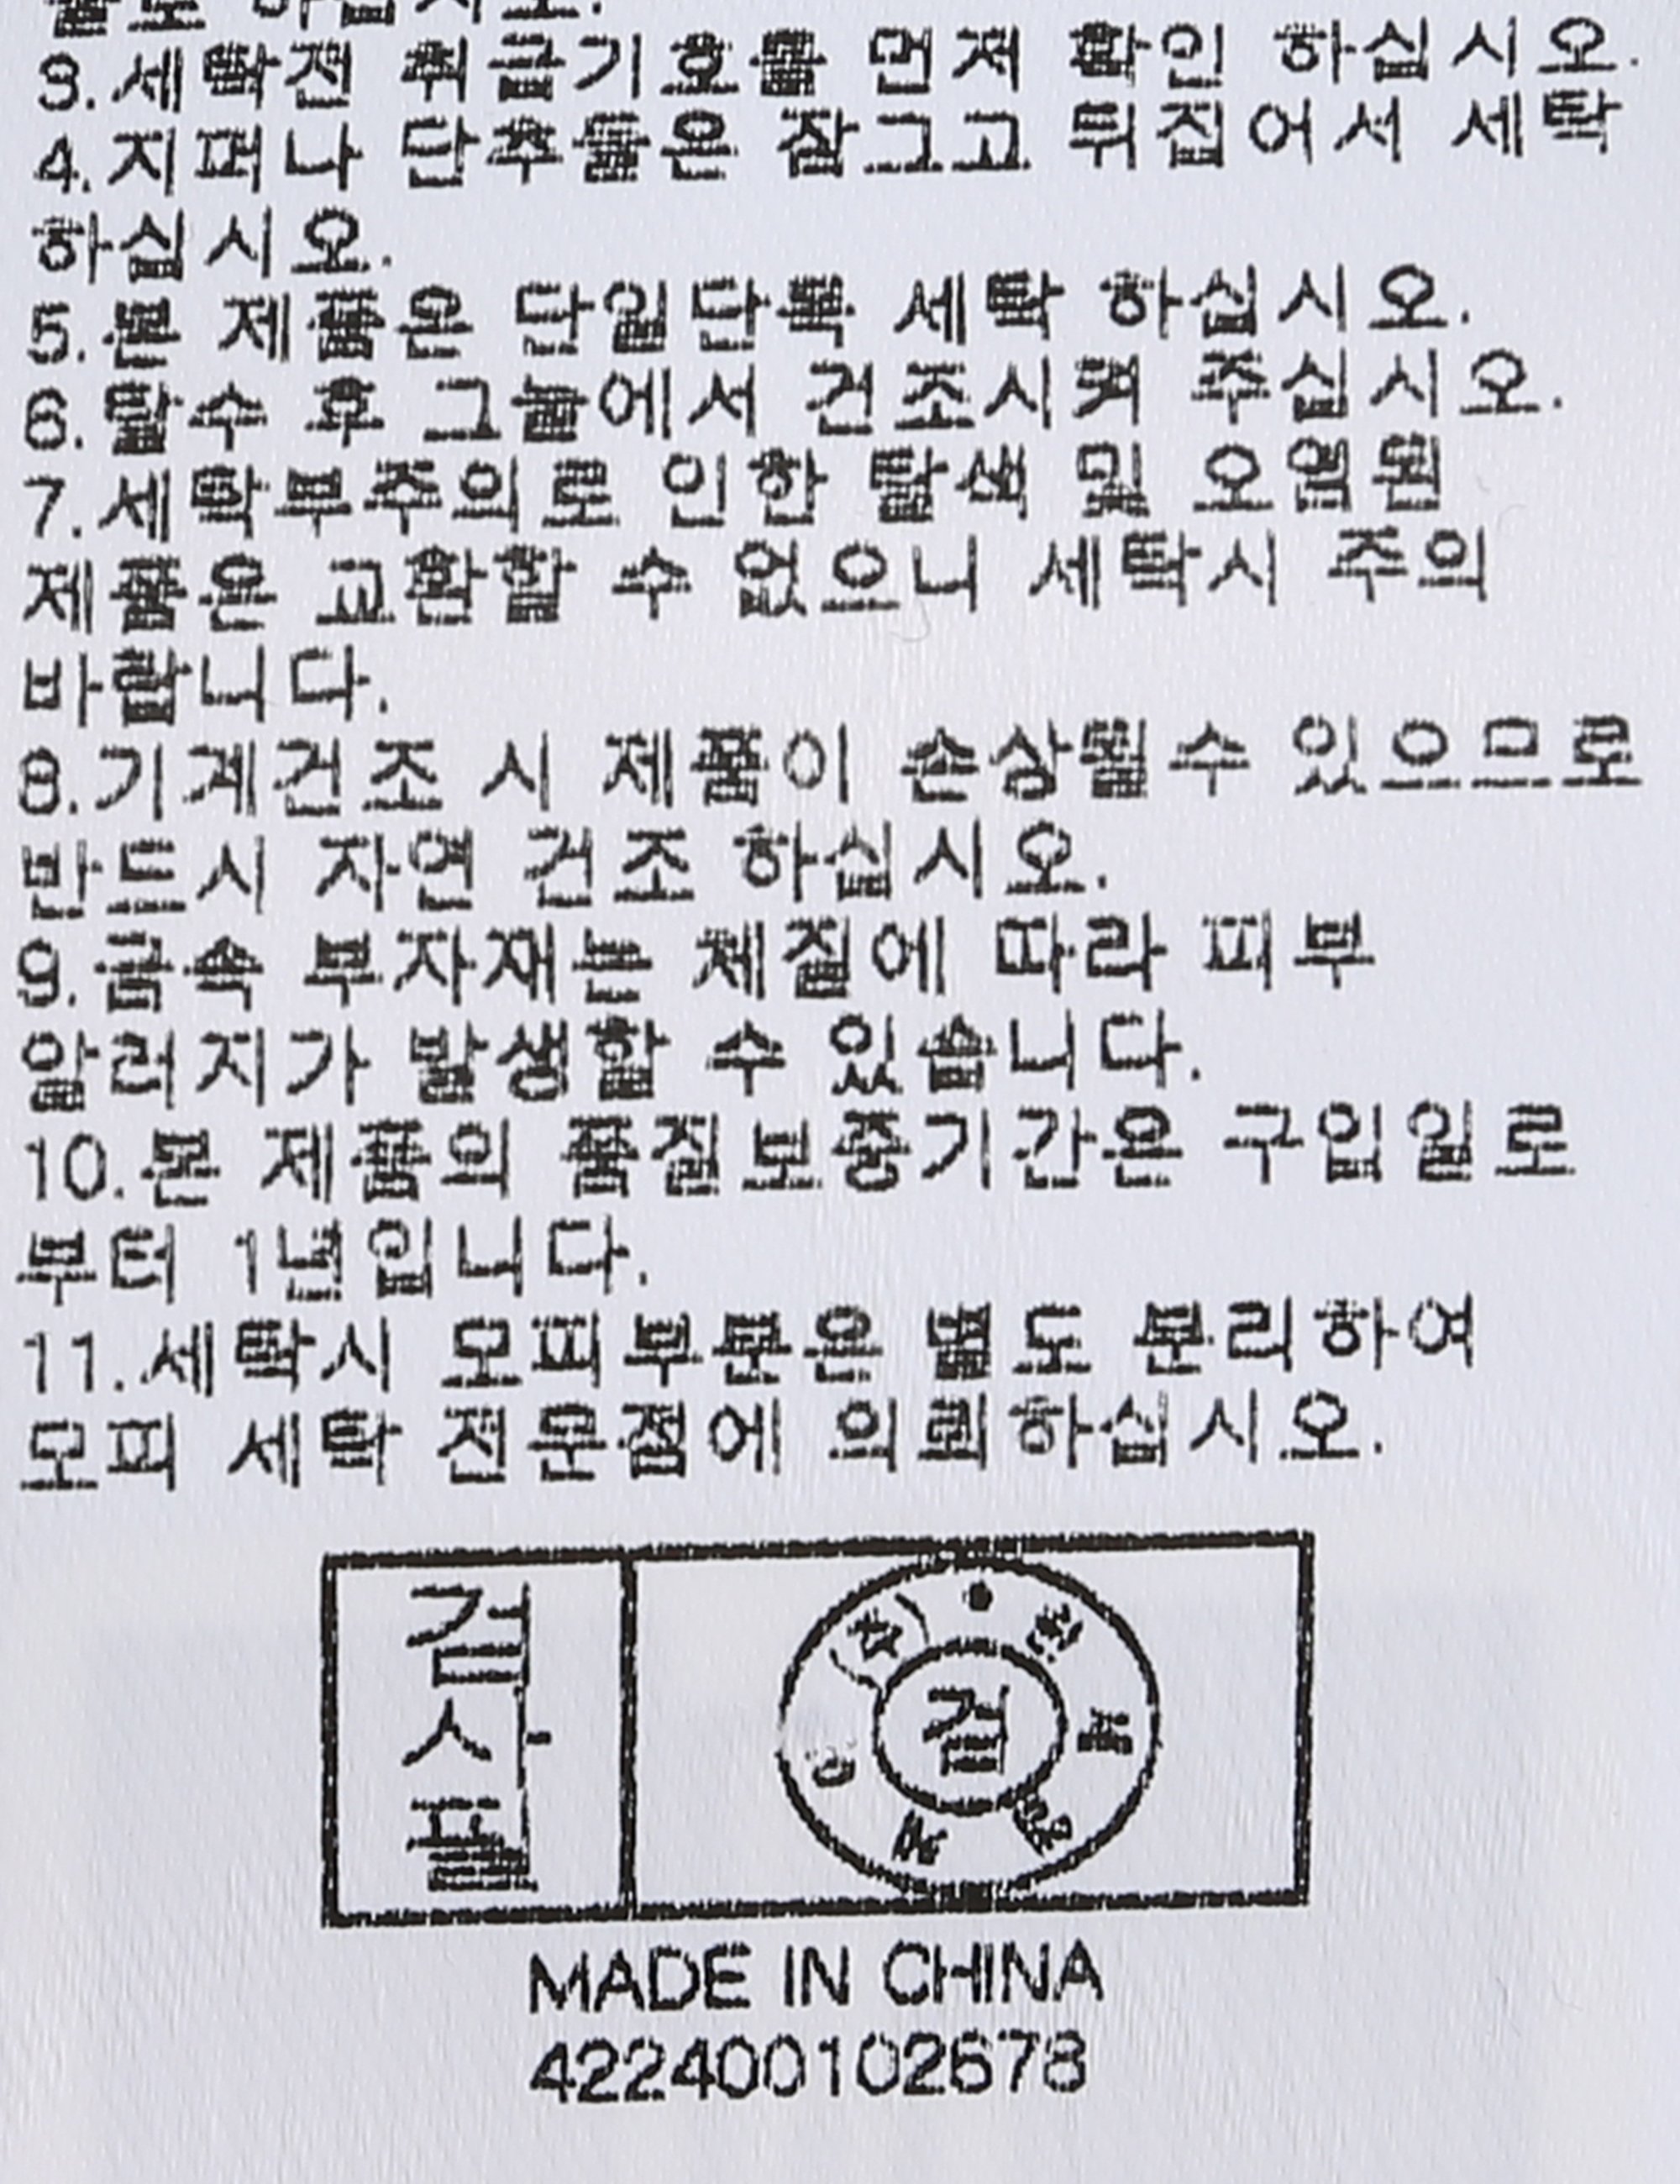 하십시오.
3.세탁전 취급기호를 먼저 확인 하십시오.
4.지퍼나 단추들은 잠그고 뒤집어서 세탁
하십시오.
5.본 제품은 단일단독 세탁 하십시오.
6.탈수 후 그늘에서 건조시켜 주십시오.
7.세탁부주의로 인한 탈색 및 오염된
제품은 교환할 수 없으니 세탁시 주의
바랍니다.
8.기계건조 시 제품이 손상될수 있으므로
반드시 자연 건조 하십시오.
9.금속 부자재는 체질에 따라 피부
알러지가 발생할 수 있습니다.
10.본 제품의 품질보증기간은 구입일로
부터 1년입니다.
11.세탁시 모피부분은 별도 분리하여
모피 세탁 전문점에 의뢰하십시오.
검
사
필
검
MADE IN CHINA
422400102678